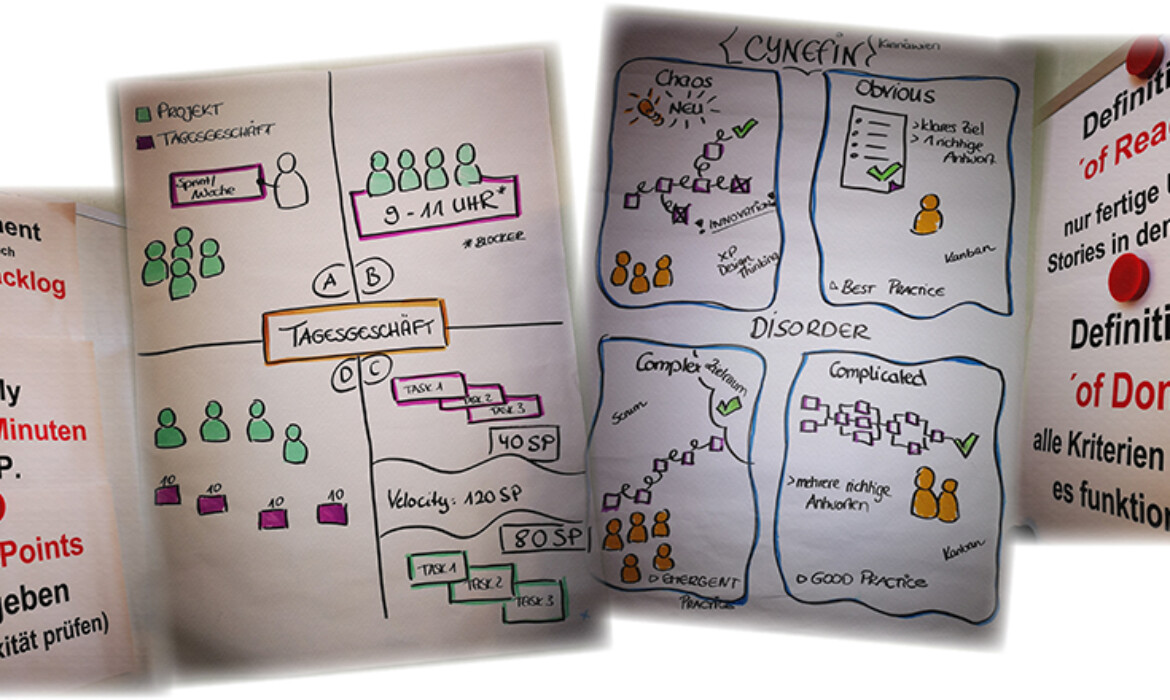 ment
ch
acklog
My
Minuten
P.
Points
geben
xität prüfen)
PROJEKT
TAGESGESCHÄFT
Sprint/
Woche
9-11 UHR*
*BLOCKER
A B
TAGESGESCHÄFT
D C
TASK 1
TASK 2
TASK 3
40 SP
Velocity: 120 SP
80 SP
TASK 1
TASK 2
TASK 3
10 10 10 10
{CYNEFIN}
Chaos
NEU
! INNOVATION!
XP
Design
Thinking
Obvious
> klares Ziel
> 1 richtige
Antwort
Kanban
▷ BEST PRACTICE
DISORDER
Complex
Zielraum
Scrum
▷ EMERGENT
PRACTICE
Complicated
> mehrere richtige
Antworten
Kanban
▷ GOOD PRACTICE
Definiti
'of Rea
nur fertige
Stories in den
Definiti
'of Don
alle Kriterien
es funktion